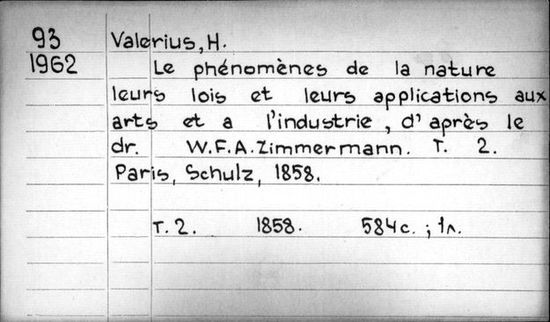 93 Valerius, H.
1962 Le phénomènes de la nature
leurs lois et leurs applications aux
arts et a l'industrie, d'après le
dr. W.F.A. Zimmermann. T. 2.
Paris, Schulz, 1858.
T. 2. 1858. 584c. ; 1л.